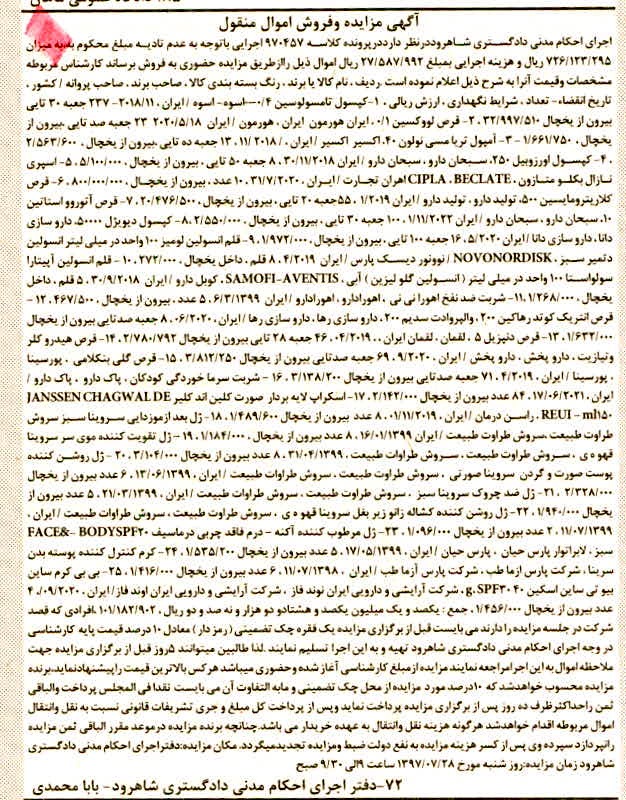 آگهی مزایده وفروش اموال منقول
اجرای احکام مدنی دادگستری شاهرود درنظر دارد در پرونده کلاسه ۹۷۰۴۵۷ اجرایی باتوجه به عدم تادیه مبلغ محکوم به به میزان
۷۲۶/۱۲۳/۲۹۵ ریال و هزینه اجرایی بمبلغ ۲۷/۵۸۷/۹۹۲ ریال اموال ذیل را از طریق مزایده حضوری به فروش برساند کارشناس مربوطه
مشخصات وقیمت آنرا به شرح ذیل اعلام نموده است .ردیف ، نام کالا یا برند ، رنگ بسته بندی کالا، صاحب برند، صاحب پروانه / کشور ،
تاریخ انقضاء- تعداد ، شرایط نگهداری ، ارزش ریالی . ۱-کپسول تامسولوسین ۰/۴-اسوه- اسوه / ایران ،۲۰۱۸/۱۱- ۲۳۷ جعبه ۳۰ تایی
بیرون از یخچال ۳۲/۹۹۷/۵۱۰ .۲- قرص لووکسین ۰/۱، ایران هورمون ایران، هورمون / ایران ۲۰۲۰/۵/۱۸ ۲۳ جعبه صد تایی ،بیرون از
یخچال ، ۱/۶۶۱/۷۵۰ -۳- آمپول تریا مسی نولون ۴۰، اکسیر اکسیر / ایران ، ۲۰۱۸/ ۱۱، ۱۳ جعبه ده تایی ،بیرون از یخچال ، ۲/۵۶۳/۶۰۰
. ۴- کپسول اورزوبیل ۲۵۰، سبحان دارو ، سبحان دارو / ایران ۳۰/۱۱/۲۰۱۸، ۸ جعبه ۵۰ تایی ، بیرون از یخچال ، ۵/۱۰۰/۰۰۰ . ۵- اسپری
نازال بکلو متازون ، CIPLA ، BECLATE اهران تجارت / ایران ، ۳۱/۷/۲۰۲۰، ۱۰ عدد، بیرون از یخچال ، ۸۰۰/۰۰۰/ . ۶- قرص
کلاریترومایسین ۵۰۰، تولید دارو ، تولید دارو / ایران ۱/۲۰۱۹ ، ۵۵جعبه ۲۰ تایی ، بیرون از یخچال ، ۲۰/۴۷۶/۵۰۰ .۷- قرص آتورو استاتین
۱۰، سبحان دارو، سبحان دارو / ایران ۱/۱۱/۲۰۲۲ ، ۱۰۰ جعبه ۳۰ تایی ، بیرون از یخچال ، ۲/۵۵۰/۰۰۰ .۸- کپسول دیویژل ۵۰۰۰۰، دارو سازی
دانا، دارو سازی دانا / ایران ۵/۲۰۲۰ ،۱۶ جعبه ۱۰۰ تایی ، بیرون از یخچال ، ۱/۹۷۲/۰۰۰ .۹- قلم انسولین لومیز ۱۰۰ واحد در میلی لیتر انسولین
دتمیر سبز ، NOVONORDISK / نوونور دیسک پارس / ایران ۴/۲۰۱۹ ،۸ قلم ، داخل یخچال ، ۲۷۲/۰۰۰ .۱۰- قلم انسولین آپیتارا
سولواستا ۱۰۰ واحد در میلی لیتر ( انسولین گلو لیزین ) آبی ، SAMOFI-AVENTIS ، کوبل دارو / ایران ۳۰/۹/۲۰۱۸ ،۵ قلم ، داخل
یخچال ، ۱/۲۶۸/۰۰۰ .۱۱- شربت ضد نفخ اهورا نی نی ، اهورادارو ، اهورادارو / ایران ۶/۳/۱۳۹۹ ،۵ عدد ، بیرون از یخچال ، ۴۶۷/۵۰۰ .۱۲-
قرص انتریک کوتد رهاکین ۲۰۰، والپروات سدیم ۲۰۰ ،دارو سازی رها ، دارو سازی رها / ایران ، ۰۶/۲۰۲۰ ، ۸ جعبه صدتایی بیرون از یخچال
۱/۶۳۲/۰۰۰ .۱۳- قرص دنپزیل ۵ ، لقمان ، لقمان ایران ، ۰۴/۲۰۱۹ ، ۴۶ جعبه ۲۸ تایی بیرون از یخچال ۲/۷۸۰/۷۹۲ .۱۴- قرص هیدرو کلر
و تیازیت ، دارو پخش ، دارو پخش / ایران ، ۹/۲۰۲۰ ، ۶۹ جعبه صدتایی بیرون از یخچال ۳/۸۱۲/۲۵۰ .۱۵- قرص گلی بنکلامی ، پورسینا
، پورسینا / ایران ، ۴/۲۰۱۹ ، ۷۱ جعبه صدتایی بیرون از یخچال ۳/۱۳۸/۲۰۰ .۱۶- شربت سرما خوردگی کودکان ، پاک دارو ، پاک دارو /
ایران ، ۱۷/۰۶/۲۰۲۱ ، ۸۴ عدد بیرون از یخچال ۲/۱۴۲/۰۰۰ .۱۷- اسکراپ لایه بردار صورت کلین اند کلیر JANSSEN CHAGWAL DE
REUI - ml۱۵۰ ، راسن درمان / ایران ، ۰۱/۱۱/۲۰۱۹ ، ۸ عدد بیرون از یخچال ۱/۴۸۹/۶۰۰ .۱۸- ژل بعد از موزدایی سروینا سبز سروش
طراوت طبیعت،سروش طراوت طبیعت / ایران ۱۶/۰۱/۱۳۹۹ ، ۸ عدد بیرون از یخچال ۱/۱۸۴/۰۰۰ .۱۹- ژل تقویت کننده موی سر سروینا
قهوه ی ، سروش طراوت طبیعت ، سروش طراوت طبیعت ، ۳۱/۰۴/۱۳۹۹ ، ۸ عدد بیرون از یخچال ۳/۱۰۴/۰۰۰ .۲۰- ژل روشن کننده
پوست صورت و گردن سروینا صورتی ، سروش طراوت طبیعت ، سروش طراوت طبیعت / ایران ، ۱۳/۰۶/۱۳۹۹ ، ۶ عدد بیرون از یخچال
۲/۳۲۸/۰۰۰ .۲۱- ژل ضد چروک سروینا سبز ، سروش طراوت طبیعت ، سروش طراوات طبیعت / ایران ، ۲۱/۰۳/۱۳۹۹ ، ۵ عدد بیرون از
یخچال ۱/۹۴۰/۰۰۰ .۲۲- ژل روشن کننده کشاله زانو زیر بغل سروینا قهوه ی ، سروش طراوت طبیعت ، سروش طراوت طبیعت / ایران ،
۱۱/۰۷/۱۳۹۹ ، ۲ عدد بیرون از یخچال ۱/۰۹۶/۰۰۰ .۲۳- ژل مرطوب کننده آکنه - درم فاقد چربی درماسیف FACE&- BODYSPF۲۰
سبز ، لابراتوار پارس حیان ، پارس حیان / ایران ، ۱۷/۰۵/۱۳۹۹ ، ۵ عدد بیرون از یخچال ۱/۵۳۵/۲۰۰ .۲۴- کرم کنترل کننده پوسته بدن
سرینا ، شرکت پارس ازما طب ، شرکت پارس آزما طب / ایران ، ۱۱/۰۷/۱۳۹۸ ، ۶ عدد بیرون از یخچال ۱/۴۱۶/۰۰۰ .۲۵- بی بی کرم ساین
بیو تی ساین اسکین ۴۰ g.SPF۳۰ ، شرکت آرایشی و دارویی ایران نوند فاز ، شرکت آرایشی و دارویی ایران اوند فاز / ایران ، ۰۹/۲۰۲۰ ، ۴
عدد بیرون از یخچال ۱/۴۵۶/۰۰۰ . جمع : یکصد و یک میلیون یکصد و هشتادو دو هزار و نه صد و دو ریال ، ۱۰۱/۱۸۲/۹۰۲ ،افرادی که قصد
شرکت در جلسه مزایده را دارند می بایست قبل از برگزاری مزایده یک فقره چک تضمینی ( رمز دار ) معادل ۱۰ درصد قیمت پایه کارشناسی
در وجه اجرای احکام مدنی دادگستری شاهرود تهیه و به این اجرا تسلیم نمایند .لذا طالبین میتوانند ۵روز قبل از برگزاری مزایده جهت
ملاحظه اموال به این اجرامراجعه نمایند مزایده از مبلغ کارشناسی آغاز شده وحضوری میباشد هرکس بالاترین قیمت را پیشنهاد نماید،برنده
مزایده محسوب خواهد شد که ۱۰درصد مورد مزایده از محل چک تضمینی و مابه التفاوت آن می بایست نقدا فی المجلس پرداخت والباقی
ثمن را حداکثر ظرف ده روز پس از برگزاری مزایده پرداخت نماید وپس از پرداخت کل مبلغ و جری تشریفات قانونی نسبت به نقل وانتقال
اموال مربوطه اقدام خواهدشد هرگونه هزینه نقل وانتقال به عهده خریدار می باشد.چنانچه برنده مزایده درموعد مقرر الباقی ثمن مزایده
را نپردازد سپرده وی پس از کسر هزینه مزایده به نفع دولت ضبط ومزایده تجدیدمیگردد. مکان مزایده:دفتراجرای احکام مدنی دادگستری
شاهرود زمان مزایده:روز شنبه مورخ ۱۳۹۷/۰۷/۲۸ ساعت ۹الی ۹/۳۰ صبح
۷۲-دفتر اجرای احکام مدنی دادگستری شاهرود- بابا محمدی